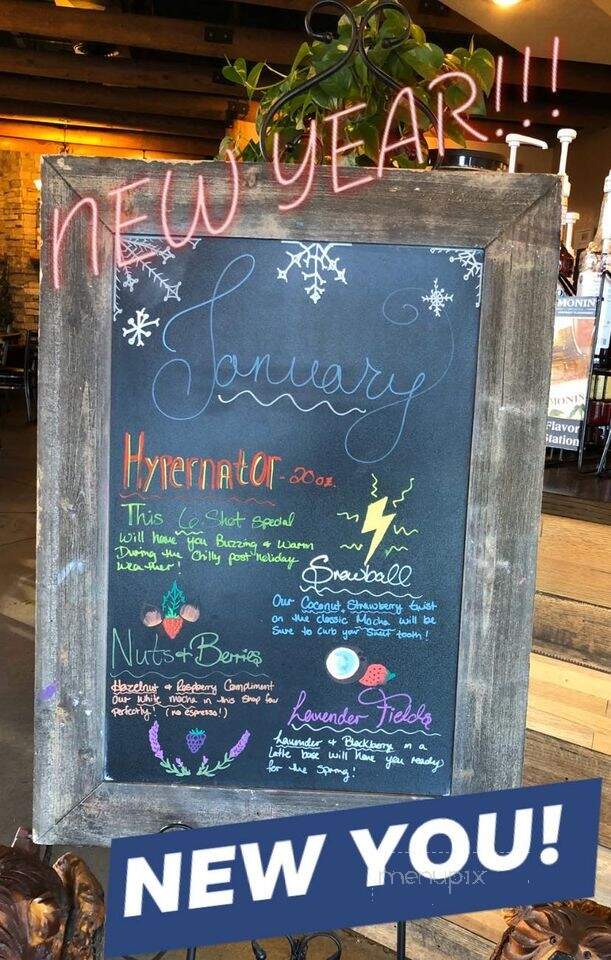 NEW YEAR!!!
January
Hypernator - 20oz.
This 6 Shot special
will have you Buzzing & warm
During the Chilly post holiday
weather!
Snowball
Our Coconut, Strawberry twist
on the classic Mocha will be
sure to curb your sweet tooth!
Nuts & Berries
Hazelnut & Raspberry Compliment
our white mocha in this shop fav
perfectly! (no espresso!)
Lavender Fields
Lavender & Blackberry in a
Latte base will have you ready
for the spring!
MONIN
MONIN
Flavor
Station
NEW YOU!
menupix